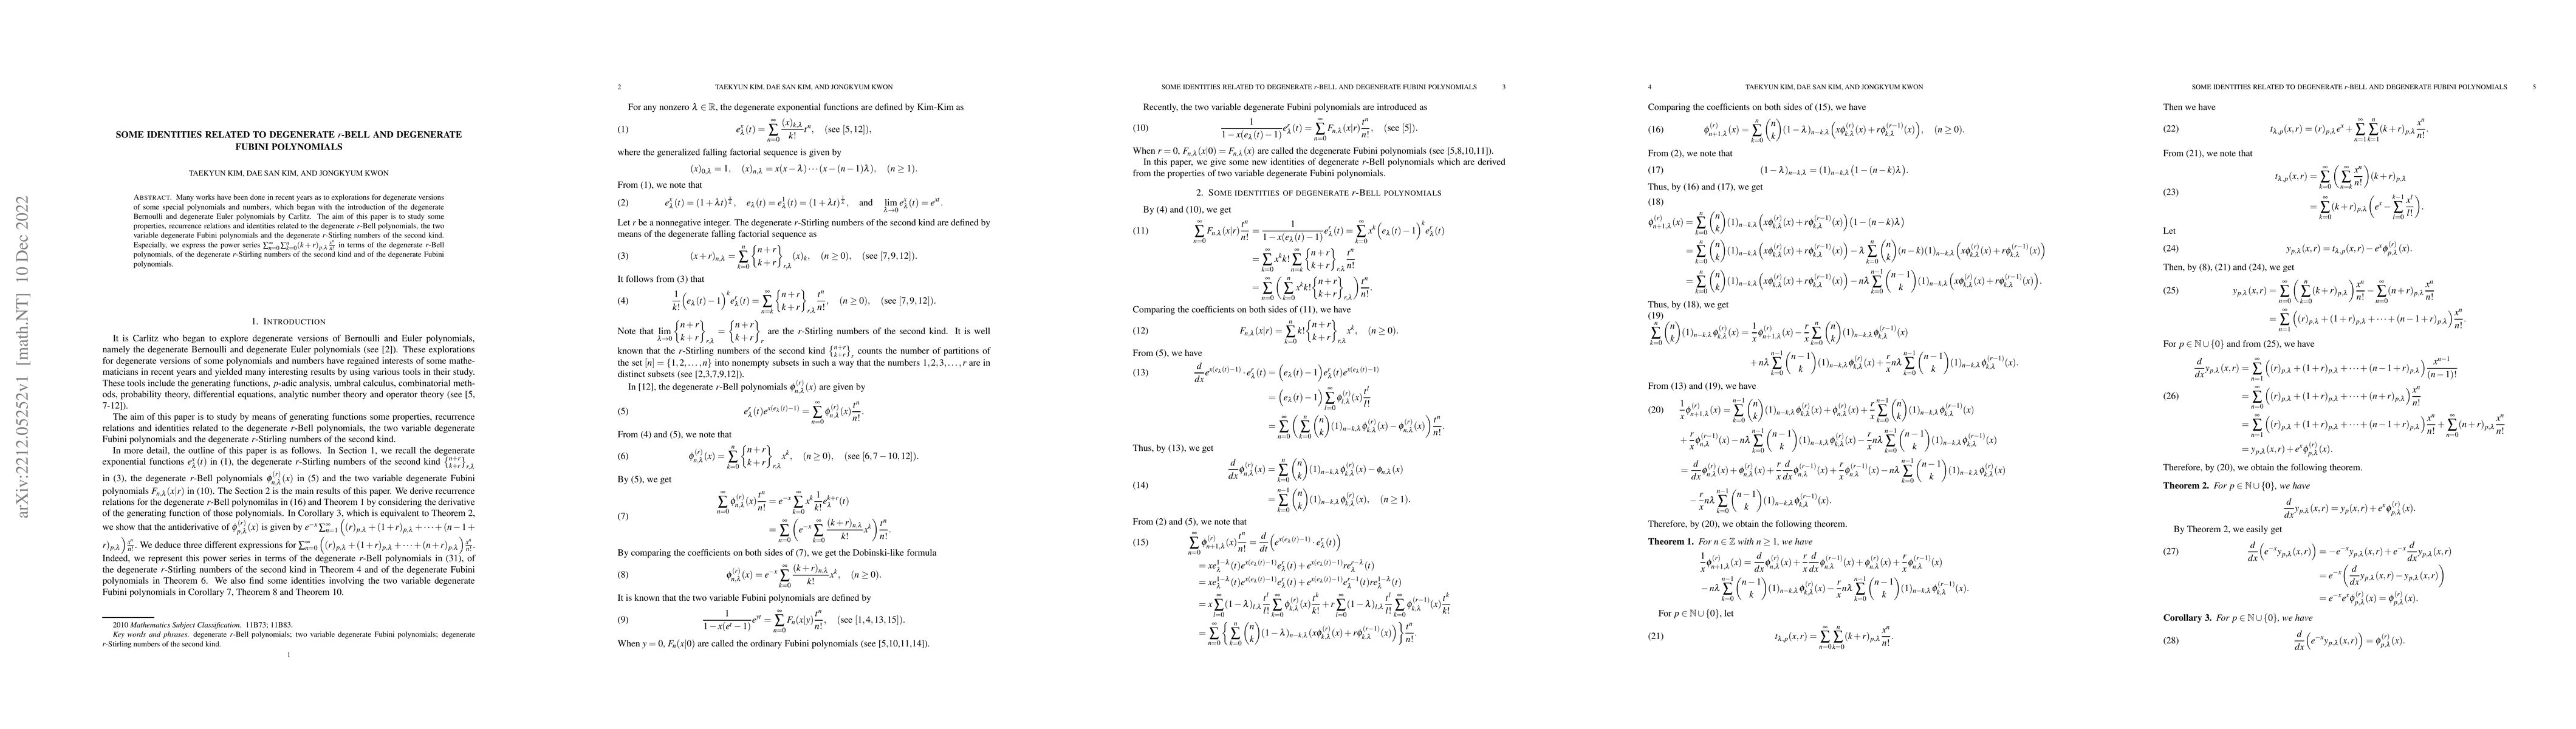 arXiv:2212.05252v1 [math.NT] 10 Dec 2022
SOME IDENTITIES RELATED TO DEGENERATE r-BELL AND DEGENERATE
FUBINI POLYNOMIALS
TAEKYUN KIM, DAE SAN KIM, AND JONGKYUM KWON
ABSTRACT. Many works have been done in recent years as to explorations for degenerate versions
of some special polynomials and numbers, which began with the introduction of the degenerate
Bernoulli and degenerate Euler polynomials by Carlitz. The aim of this paper is to study some
properties, recurrence relations and identities related to the degenerate r-Bell polynomials, the two
variable degenerate Fubini polynomials and the degenerate r-Stirling numbers of the second kind.
Especially, we express the power series $\sum_{n=0}^{\infty}\sum_{k=0}^{n}(k+r)_{p,\lambda}\frac{x^n}{n!}$ in terms of the degenerate r-Bell
polynomials, of the degenerate r-Stirling numbers of the second kind and of the degenerate Fubini
polynomials.
1. INTRODUCTION
It is Carlitz who began to explore degenerate versions of Bernoulli and Euler polynomials,
namely the degenerate Bernoulli and degenerate Euler polynomials (see [2]). These explorations
for degenerate versions of some polynomials and numbers have regained interests of some mathe-
maticians in recent years and yielded many interesting results by using various tools in their study.
These tools include the generating functions, p-adic analysis, umbral calculus, combinatorial meth-
ods, probability theory, differential equations, analytic number theory and operator theory (see [5,
7-12]).
The aim of this paper is to study by means of generating functions some properties, recurrence
relations and identities related to the degenerate r-Bell polynomials, the two variable degenerate
Fubini polynomials and the degenerate r-Stirling numbers of the second kind.
In more detail, the outline of this paper is as follows. In Section 1, we recall the degenerate
exponential functions $e_\lambda^x(t)$ in (1), the degenerate r-Stirling numbers of the second kind ${n+r \brace k+r}_{r,\lambda}$
in (3), the degenerate r-Bell polynomials $\phi_{n,\lambda}^{(r)}(x)$ in (5) and the two variable degenerate Fubini
polynomials $F_{n,\lambda}(x|r)$ in (10). The Section 2 is the main results of this paper. We derive recurrence
relations for the degenerate r-Bell polynomilas in (16) and Theorem 1 by considering the derivative
of the generating function of those polynomials. In Corollary 3, which is equivalent to Theorem 2,
we show that the antiderivative of $\phi_{p,\lambda}^{(r)}(x)$ is given by $e^{-x}\sum_{n=1}^{\infty}\Big((r)_{p,\lambda}+(1+r)_{p,\lambda}+\cdots+(n-1+$
$r)_{p,\lambda}\Big)\frac{x^n}{n!}$. We deduce three different expressions for $\sum_{n=0}^{\infty}\Big((r)_{p,\lambda}+(1+r)_{p,\lambda}+\cdots+(n+r)_{p,\lambda}\Big)\frac{x^n}{n!}$.
Indeed, we represent this power series in terms of the degenerate r-Bell polynomials in (31), of
the degenerate r-Stirling numbers of the second kind in Theorem 4 and of the degenerate Fubini
polynomials in Theorem 6. We also find some identities involving the two variable degenerate
Fubini polynomials in Corollary 7, Theorem 8 and Theorem 10.
2010 Mathematics Subject Classification. 11B73; 11B83.
Key words and phrases. degenerate r-Bell polynomials; two variable degenerate Fubini polynomials; degenerate
r-Stirling numbers of the second kind.
1
2 TAEKYUN KIM, DAE SAN KIM, AND JONGKYUM KWON
For any nonzero $\lambda \in \mathbb{R}$, the degenerate exponential functions are defined by Kim-Kim as
(1) $e_\lambda^x(t) = \sum_{n=0}^{\infty}\frac{(x)_{k,\lambda}}{k!}t^n$, (see [5,12]),
where the generalized falling factorial sequence is given by
$(x)_{0,\lambda} = 1, \quad (x)_{n,\lambda} = x(x-\lambda)\cdots(x-(n-1)\lambda), \quad (n \ge 1).$
From (1), we note that
(2) $e_\lambda^x(t) = (1+\lambda t)^{\frac{x}{\lambda}}, \quad e_\lambda(t) = e_\lambda^1(t) = (1+\lambda t)^{\frac{1}{\lambda}}$, and $\lim_{\lambda\to 0} e_\lambda^x(t) = e^{xt}$.
Let r be a nonnegative integer. The degenerate r-Stirling numbers of the second kind are defined by
means of the degenerate falling factorial sequence as
(3) $(x+r)_{n,\lambda} = \sum_{k=0}^{n}{n+r \brace k+r}_{r,\lambda}(x)_k, \quad (n \ge 0)$, (see [7,9,12]).
It follows from (3) that
(4) $\frac{1}{k!}\Big(e_\lambda(t)-1\Big)^k e_\lambda^r(t) = \sum_{n=k}^{\infty}{n+r \brace k+r}_{r,\lambda}\frac{t^n}{n!}, \quad (n \ge 0)$, (see [7,9,12]).
Note that $\lim_{\lambda\to 0}{n+r \brace k+r}_{r,\lambda} = {n+r \brace k+r}_r$ are the r-Stirling numbers of the second kind. It is well
known that the r-Stirling numbers of the second kind ${n+r \brace k+r}_r$ counts the number of partitions of
the set $[n] = \{1,2,\dots,n\}$ into nonempty subsets in such a way that the numbers $1,2,3,\dots,r$ are in
distinct subsets (see [2,3,7,9,12]).
In [12], the degenerate r-Bell polynomials $\phi_{n,\lambda}^{(r)}(x)$ are given by
(5) $e_\lambda^r(t)e^{x(e_\lambda(t)-1)} = \sum_{n=0}^{\infty}\phi_{n,\lambda}^{(r)}(x)\frac{t^n}{n!}.$
From (4) and (5), we note that
(6) $\phi_{n,\lambda}^{(r)}(x) = \sum_{k=0}^{n}{n+r \brace k+r}_{r,\lambda}x^k, \quad (n \ge 0)$, (see [6,7-10,12]).
By (5), we get
$\sum_{n=0}^{\infty}\phi_{n,\lambda}^{(r)}(x)\frac{t^n}{n!} = e^{-x}\sum_{k=0}^{\infty}x^k\frac{1}{k!}e_\lambda^{k+r}(t)$
(7) $= \sum_{n=0}^{\infty}\Big(e^{-x}\sum_{k=0}^{\infty}\frac{(k+r)_{n,\lambda}}{k!}x^k\Big)\frac{t^n}{n!}.$
By comparing the coefficients on both sides of (7), we get the Dobinski-like formula
(8) $\phi_{n,\lambda}^{(r)}(x) = e^{-x}\sum_{k=0}^{\infty}\frac{(k+r)_{n,\lambda}}{k!}x^k, \quad (n \ge 0).$
It is known that the two variable Fubini polynomials are defined by
(9) $\frac{1}{1-x(e^t-1)}e^{yt} = \sum_{n=0}^{\infty}F_n(x|y)\frac{t^n}{n!}$, (see [1,4,13,15]).
When $y = 0$, $F_n(x|0)$ are called the ordinary Fubini polynomials (see [5,10,11,14]).
SOME IDENTITIES RELATED TO DEGENERATE r-BELL AND DEGENERATE FUBINI POLYNOMIALS 3
Recently, the two variable degenerate Fubini polynomials are introduced as
(10) $\frac{1}{1-x(e_\lambda(t)-1)}e_\lambda^r(t) = \sum_{n=0}^{\infty}F_{n,\lambda}(x|r)\frac{t^n}{n!}$, (see [5]).
When $r = 0$, $F_{n,\lambda}(x|0) = F_{n,\lambda}(x)$ are called the degenerate Fubini polynomials (see [5,8,10,11]).
In this paper, we give some new identities of degenerate r-Bell polynomials which are derived
from the properties of two variable degenerate Fubini polynomials.
2. SOME IDENTITIES OF DEGENERATE r-BELL POLYNOMIALS
By (4) and (10), we get
(11) $\sum_{n=0}^{\infty}F_{n,\lambda}(x|r)\frac{t^n}{n!} = \frac{1}{1-x(e_\lambda(t)-1)}e_\lambda^r(t) = \sum_{k=0}^{\infty}x^k\Big(e_\lambda(t)-1\Big)^k e_\lambda^r(t)$
$= \sum_{k=0}^{\infty}x^k k!\sum_{n=k}^{\infty}{n+r \brace k+r}_{r,\lambda}\frac{t^n}{n!}$
$= \sum_{n=0}^{\infty}\Big(\sum_{k=0}^{n}x^k k!{n+r \brace k+r}_{r,\lambda}\Big)\frac{t^n}{n!}.$
Comparing the coefficients on both sides of (11), we have
(12) $F_{n,\lambda}(x|r) = \sum_{k=0}^{n}k!{n+r \brace k+r}_{r,\lambda}x^k, \quad (n \ge 0).$
From (5), we have
(13) $\frac{d}{dx}e^{x(e_\lambda(t)-1)}\cdot e_\lambda^r(t) = \Big(e_\lambda(t)-1\Big)e_\lambda^r(t)e^{x(e_\lambda(t)-1)}$
$= \Big(e_\lambda(t)-1\Big)\sum_{l=0}^{\infty}\phi_{l,\lambda}^{(r)}(x)\frac{t^l}{l!}$
$= \sum_{n=0}^{\infty}\Big(\sum_{k=0}^{n}\binom{n}{k}(1)_{n-k,\lambda}\phi_{k,\lambda}^{(r)}(x)-\phi_{n,\lambda}^{(r)}(x)\Big)\frac{t^n}{n!}.$
Thus, by (13), we get
$\frac{d}{dx}\phi_{n,\lambda}^{(r)}(x) = \sum_{k=0}^{n}\binom{n}{k}(1)_{n-k,\lambda}\phi_{k,\lambda}^{(r)}(x)-\phi_{n,\lambda}(x)$
(14) $= \sum_{k=0}^{n-1}\binom{n}{k}(1)_{n-k,\lambda}\phi_{k,\lambda}^{(r)}(x), \quad (n \ge 1).$
From (2) and (5), we note that
(15) $\sum_{n=0}^{\infty}\phi_{n+1,\lambda}^{(r)}(x)\frac{t^n}{n!} = \frac{d}{dt}\Big(e^{x(e_\lambda(t)-1)}\cdot e_\lambda^r(t)\Big)$
$= xe_\lambda^{1-\lambda}(t)e^{x(e_\lambda(t)-1)}e_\lambda^r(t)+e^{x(e_\lambda(t)-1)}re_\lambda^{r-\lambda}(t)$
$= xe_\lambda^{1-\lambda}(t)e^{x(e_\lambda(t)-1)}e_\lambda^r(t)+e^{x(e_\lambda(t)-1)}e_\lambda^{r-1}(t)re_\lambda^{1-\lambda}(t)$
$= x\sum_{l=0}^{\infty}(1-\lambda)_{l,\lambda}\frac{t^l}{l!}\sum_{k=0}^{\infty}\phi_{k,\lambda}^{(r)}(x)\frac{t^k}{k!}+r\sum_{l=0}^{\infty}(1-\lambda)_{l,\lambda}\frac{t^l}{l!}\sum_{k=0}^{\infty}\phi_{k,\lambda}^{(r-1)}(x)\frac{t^k}{k!}$
$= \sum_{n=0}^{\infty}\Big\{\sum_{k=0}^{n}\binom{n}{k}(1-\lambda)_{n-k,\lambda}(x\phi_{k,\lambda}^{(r)}(x)+r\phi_{k,\lambda}^{(r-1)}(x))\Big\}\frac{t^n}{n!}.$
4 TAEKYUN KIM, DAE SAN KIM, AND JONGKYUM KWON
Comparing the coefficients on both sides of (15), we have
(16) $\phi_{n+1,\lambda}^{(r)}(x) = \sum_{k=0}^{n}\binom{n}{k}(1-\lambda)_{n-k,\lambda}\Big(x\phi_{k,\lambda}^{(r)}(x)+r\phi_{k,\lambda}^{(r-1)}(x)\Big), \quad (n \ge 0).$
From (2), we note that
(17) $(1-\lambda)_{n-k,\lambda} = (1)_{n-k,\lambda}\big(1-(n-k)\lambda\big).$
Thus, by (16) and (17), we get
(18)
$\phi_{n+1,\lambda}^{(r)}(x) = \sum_{k=0}^{n}\binom{n}{k}(1)_{n-k,\lambda}\Big(x\phi_{k,\lambda}^{(r)}(x)+r\phi_{k,\lambda}^{(r-1)}(x)\Big)\Big(1-(n-k)\lambda\Big)$
$= \sum_{k=0}^{n}\binom{n}{k}(1)_{n-k,\lambda}\Big(x\phi_{k,\lambda}^{(r)}(x)+r\phi_{k,\lambda}^{(r-1)}(x)\Big)-\lambda\sum_{k=0}^{n}\binom{n}{k}(n-k)(1)_{n-k,\lambda}\Big(x\phi_{k,\lambda}^{(r)}(x)+r\phi_{k,\lambda}^{(r-1)}(x)\Big)$
$= \sum_{k=0}^{n}\binom{n}{k}(1)_{n-k,\lambda}\Big(x\phi_{k,\lambda}^{(r)}(x)+r\phi_{k,\lambda}^{(r-1)}(x)\Big)-n\lambda\sum_{k=0}^{n-1}\binom{n-1}{k}(1)_{n-k,\lambda}\Big(x\phi_{k,\lambda}^{(r)}(x)+r\phi_{k,\lambda}^{(r-1)}(x)\Big).$
Thus, by (18), we get
(19)
$\sum_{k=0}^{n}\binom{n}{k}(1)_{n-k,\lambda}\phi_{k,\lambda}^{(r)}(x) = \frac{1}{x}\phi_{n+1,\lambda}^{(r)}(x)-\frac{r}{x}\sum_{k=0}^{n}\binom{n}{k}(1)_{n-k,\lambda}\phi_{k,\lambda}^{(r-1)}(x)$
$+n\lambda\sum_{k=0}^{n-1}\binom{n-1}{k}(1)_{n-k,\lambda}\phi_{k,\lambda}^{(r)}(x)+\frac{r}{x}n\lambda\sum_{k=0}^{n-1}\binom{n-1}{k}(1)_{n-k,\lambda}\phi_{k,\lambda}^{(r-1)}(x).$
From (13) and (19), we have
(20) $\frac{1}{x}\phi_{n+1,\lambda}^{(r)}(x) = \sum_{k=0}^{n-1}\binom{n}{k}(1)_{n-k,\lambda}\phi_{k,\lambda}^{(r)}(x)+\phi_{n,\lambda}^{(r)}(x)+\frac{r}{x}\sum_{k=0}^{n-1}\binom{n}{k}(1)_{n-k,\lambda}\phi_{k,\lambda}^{(r-1)}(x)$
$+\frac{r}{x}\phi_{n,\lambda}^{(r-1)}(x)-n\lambda\sum_{k=0}^{n-1}\binom{n-1}{k}(1)_{n-k,\lambda}\phi_{k,\lambda}^{(r)}(x)-\frac{r}{x}n\lambda\sum_{k=0}^{n-1}\binom{n-1}{k}(1)_{n-k,\lambda}\phi_{k,\lambda}^{(r-1)}(x)$
$= \frac{d}{dx}\phi_{n,\lambda}^{(r)}(x)+\phi_{n,\lambda}^{(r)}(x)+\frac{r}{x}\frac{d}{dx}\phi_{n,\lambda}^{(r-1)}(x)+\frac{r}{x}\phi_{n,\lambda}^{(r-1)}(x)-n\lambda\sum_{k=0}^{n-1}\binom{n-1}{k}(1)_{n-k,\lambda}\phi_{k,\lambda}^{(r)}(x)$
$-\frac{r}{x}n\lambda\sum_{k=0}^{n-1}\binom{n-1}{k}(1)_{n-k,\lambda}\phi_{k,\lambda}^{(r-1)}(x).$
Therefore, by (20), we obtain the following theorem.
Theorem 1. For $n \in \mathbb{Z}$ with $n \ge 1$, we have
$\frac{1}{x}\phi_{n+1,\lambda}^{(r)}(x) = \frac{d}{dx}\phi_{n,\lambda}^{(r)}(x)+\frac{r}{x}\frac{d}{dx}\phi_{n,\lambda}^{(r-1)}(x)+\phi_{n,\lambda}^{(r)}(x)+\frac{r}{x}\phi_{n,\lambda}^{(r-1)}(x)$
$-n\lambda\sum_{k=0}^{n-1}\binom{n-1}{k}(1)_{n-k,\lambda}\phi_{k,\lambda}^{(r)}(x)-\frac{r}{x}n\lambda\sum_{k=0}^{n-1}\binom{n-1}{k}(1)_{n-k,\lambda}\phi_{k,\lambda}^{(r-1)}(x).$
For $p \in \mathbb{N}\cup\{0\}$, let
(21) $t_{\lambda,p}(x,r) = \sum_{n=0}^{\infty}\sum_{k=0}^{n}(k+r)_{p,\lambda}\frac{x^n}{n!}.$
SOME IDENTITIES RELATED TO DEGENERATE r-BELL AND DEGENERATE FUBINI POLYNOMIALS 5
Then we have
(22) $t_{\lambda,p}(x,r) = (r)_{p,\lambda}e^x+\sum_{n=1}^{\infty}\sum_{k=1}^{n}(k+r)_{p,\lambda}\frac{x^n}{n!}.$
From (21), we note that
$t_{\lambda,p}(x,r) = \sum_{k=0}^{\infty}\Big(\sum_{n=k}^{\infty}\frac{x^n}{n!}\Big)(k+r)_{p,\lambda}$
(23) $= \sum_{k=0}^{\infty}(k+r)_{p,\lambda}\Big(e^x-\sum_{l=0}^{k-1}\frac{x^l}{l!}\Big).$
Let
(24) $y_{p,\lambda}(x,r) = t_{\lambda,p}(x,r)-e^x\phi_{p,\lambda}^{(r)}(x).$
Then, by (8), (21) and (24), we get
(25) $y_{p,\lambda}(x,r) = \sum_{n=0}^{\infty}\Big(\sum_{k=0}^{n}(k+r)_{p,\lambda}\Big)\frac{x^n}{n!}-\sum_{n=0}^{\infty}(n+r)_{p,\lambda}\frac{x^n}{n!}$
$= \sum_{n=1}^{\infty}\Big((r)_{p,\lambda}+(1+r)_{p,\lambda}+\cdots+(n-1+r)_{p,\lambda}\Big)\frac{x^n}{n!}.$
For $p \in \mathbb{N}\cup\{0\}$ and from (25), we have
$\frac{d}{dx}y_{p,\lambda}(x,r) = \sum_{n=1}^{\infty}\Big((r)_{p,\lambda}+(1+r)_{p,\lambda}+\cdots+(n-1+r)_{p,\lambda}\Big)\frac{x^{n-1}}{(n-1)!}$
(26) $= \sum_{n=0}^{\infty}\Big((r)_{p,\lambda}+(1+r)_{p,\lambda}+\cdots+(n+r)_{p,\lambda}\Big)\frac{x^n}{n!}$
$= \sum_{n=1}^{\infty}\Big((r)_{p,\lambda}+(1+r)_{p,\lambda}+\cdots+(n-1+r)_{p,\lambda}\Big)\frac{x^n}{n!}+\sum_{n=0}^{\infty}(n+r)_{p,\lambda}\frac{x^n}{n!}$
$= y_{p,\lambda}(x,r)+e^x\phi_{p,\lambda}^{(r)}(x).$
Therefore, by (20), we obtain the following theorem.
Theorem 2. For $p \in \mathbb{N}\cup\{0\}$, we have
$\frac{d}{dx}y_{p,\lambda}(x,r) = y_p(x,r)+e^x\phi_{p,\lambda}^{(r)}(x).$
By Theorem 2, we easily get
(27) $\frac{d}{dx}\Big(e^{-x}y_{p,\lambda}(x,r)\Big) = -e^{-x}y_{p,\lambda}(x,r)+e^{-x}\frac{d}{dx}y_{p,\lambda}(x,r)$
$= e^{-x}\Big(\frac{d}{dx}y_{p,\lambda}(x,r)-y_{p,\lambda}(x,r)\Big)$
$= e^{-x}e^x\phi_{p,\lambda}^{(r)}(x) = \phi_{p,\lambda}^{(r)}(x).$
Corollary 3. For $p \in \mathbb{N}\cup\{0\}$, we have
(28) $\frac{d}{dx}\Big(e^{-x}y_{p,\lambda}(x,r)\Big) = \phi_{p,\lambda}^{(r)}(x).$